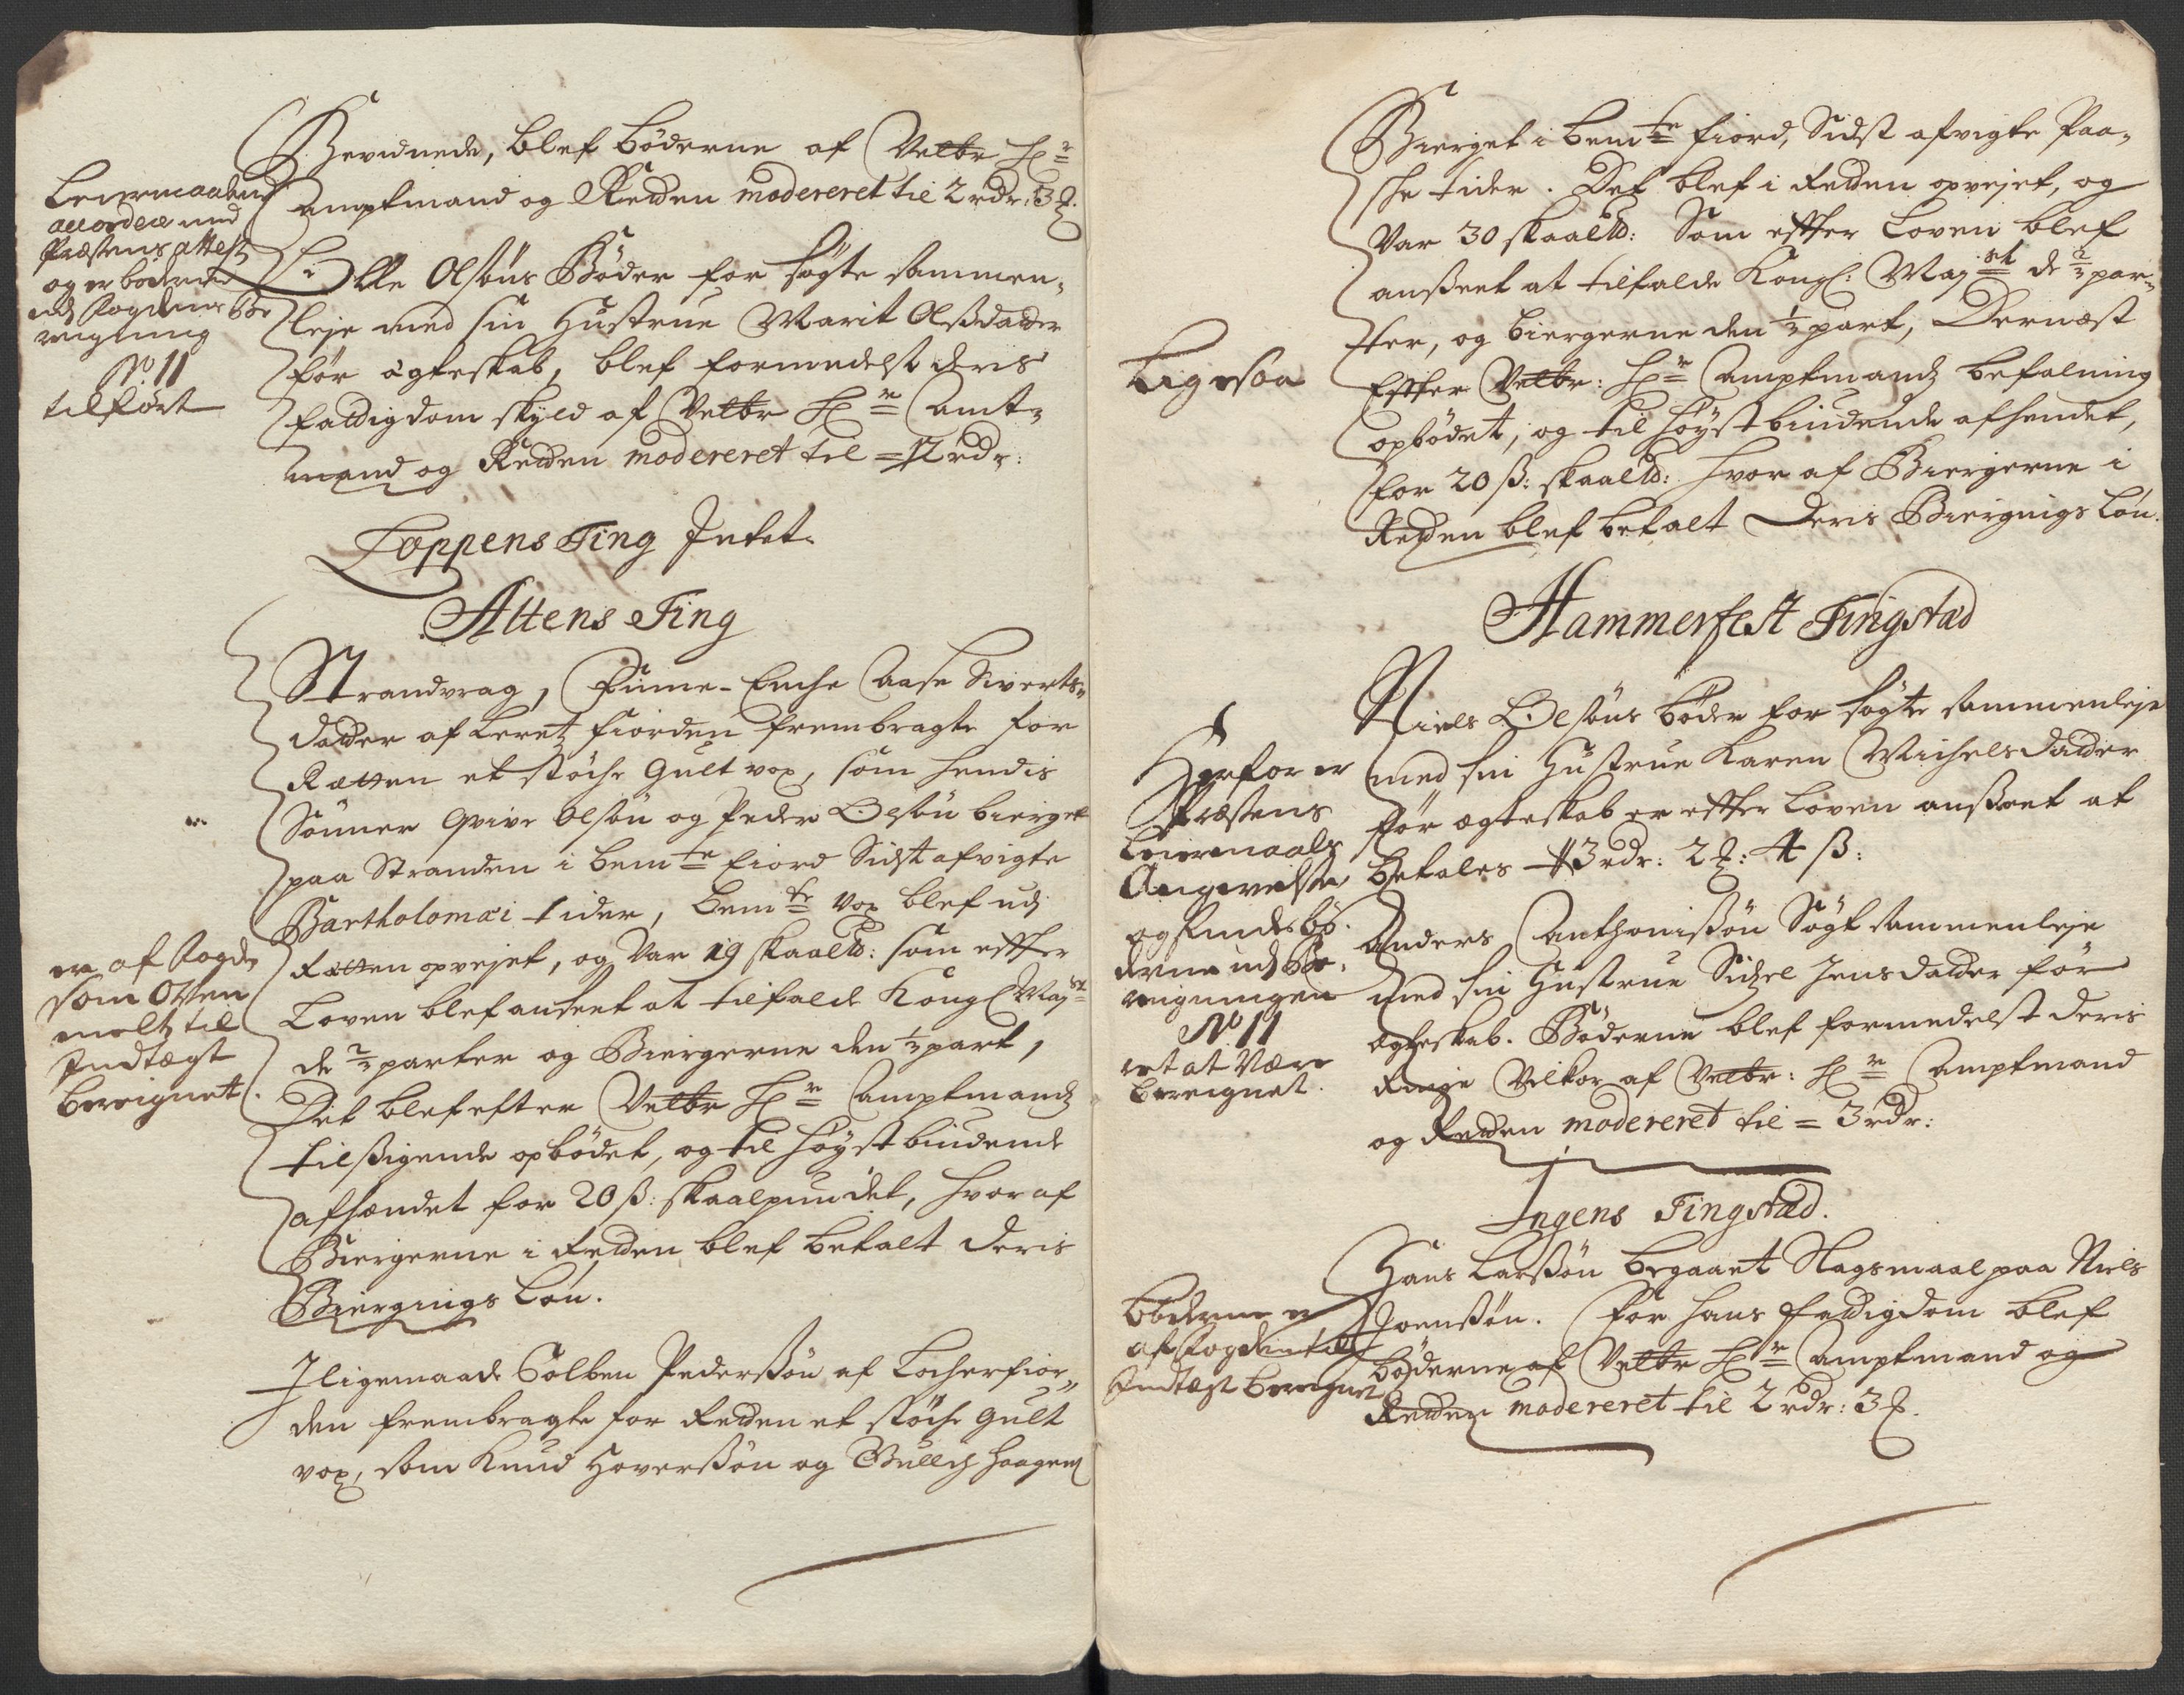 Bevidnede, blef bøderne af Velbr Hr
Amptmand og Retten modereret til 2 rdr: 3 
Leiermaalene
accorderer med
Præstens attest
og er bøderne
udj Fogdens Be
reigning
No 11
tilført
Olle Olsøns Bøder for søgte sammen„
leje med sin Hustrue Marit Olsdatter
før ægteskab, blef formedelst deris
fattigdom skyld af Velbr Hr Amt„
mand og Retten modereret til = 12 rdr:
Loppens Ting Intet.
Altens Ting
Strandvrag, Finne-Enche Aase Siverts„
datter af Leretz fiorden frembragte for
Rætten et støche Gult vox, som hendis
Sønner Olsøn og Peder Olsøn bierget
paa Stranden i bemte fiord Sidst afvigte
Bartholomæi tider, bemte vox blef udj
Rætten opvejet, og Var 19 skaal℔: som effter
Loven blef anseet at tilfalde Kongl Mayst
de 2/3 parter og Biergerne den 1/3 part,
Det blef efter Velbr Hr Amptmands
tilsigende opbødet, og til høyst biudende
afhændet for 20 ß: skaalpundet, hvoraf
Biergerne i Retten blef betalt deris
Biergnings Løn.
er af Fogden
som Oven
melt til
Indtægt
bereignet.
Iligemaade Colben Pederssøn af Locherfior„
den frembragte for Retten et støche Gult
vox, som Knud Hoverssøn og
Bierget i bemte fiord, Sidst afvigte Paa„
sche tider. Det blef i Retten opvejet, og
Var 30 skaal℔: Som effter Loven blef
ansseet at tilfalde Kongl: Mayst de 2/3 par„
ter, og biergerne den 1/3 part, Dernæst
Effter Velbr: Hr Amptmands befalning
opbødet, og til høyst biudende afhendet,
for 20 ß: skaal℔: hvor af Biergerne i
Retten blef betalt Deris Biergnigs Løn.
Ligesaa
Hammerfest Tingstad
Niels Olsøns bøder for søgte sammenleje
med sin Hustrue Karen Michelsdatter
før ægteskab er effter Loven ansseet at
betales 13 rdr: 2 : 4 ß:
Herfor er
Præstens
Leiermaals
Angivelse
og findes bø„
derne udj Be„
reigningen
No 11
ret at Være
bereignet.
Anders Anthonissøn Søgt sammenleje
med sin Hustrue Sidzel Jensdatter før
Egteskab. Bøderne blef formedelst deris
Ringe Vilkor af Velbr: Hr Amptmand
og Retten modereret til = 3 rdr:
Ingens Tingstæd.
Hans Larssøn begaaet Slagsmaal paa Niels
Joenssøn. for hans fattigdom blef
bøderne af Velbr Hr Amptmand og
Retten modereret til 2 rdr: 3 
Bøderne er
af Fogden til
Indtægt bereignet